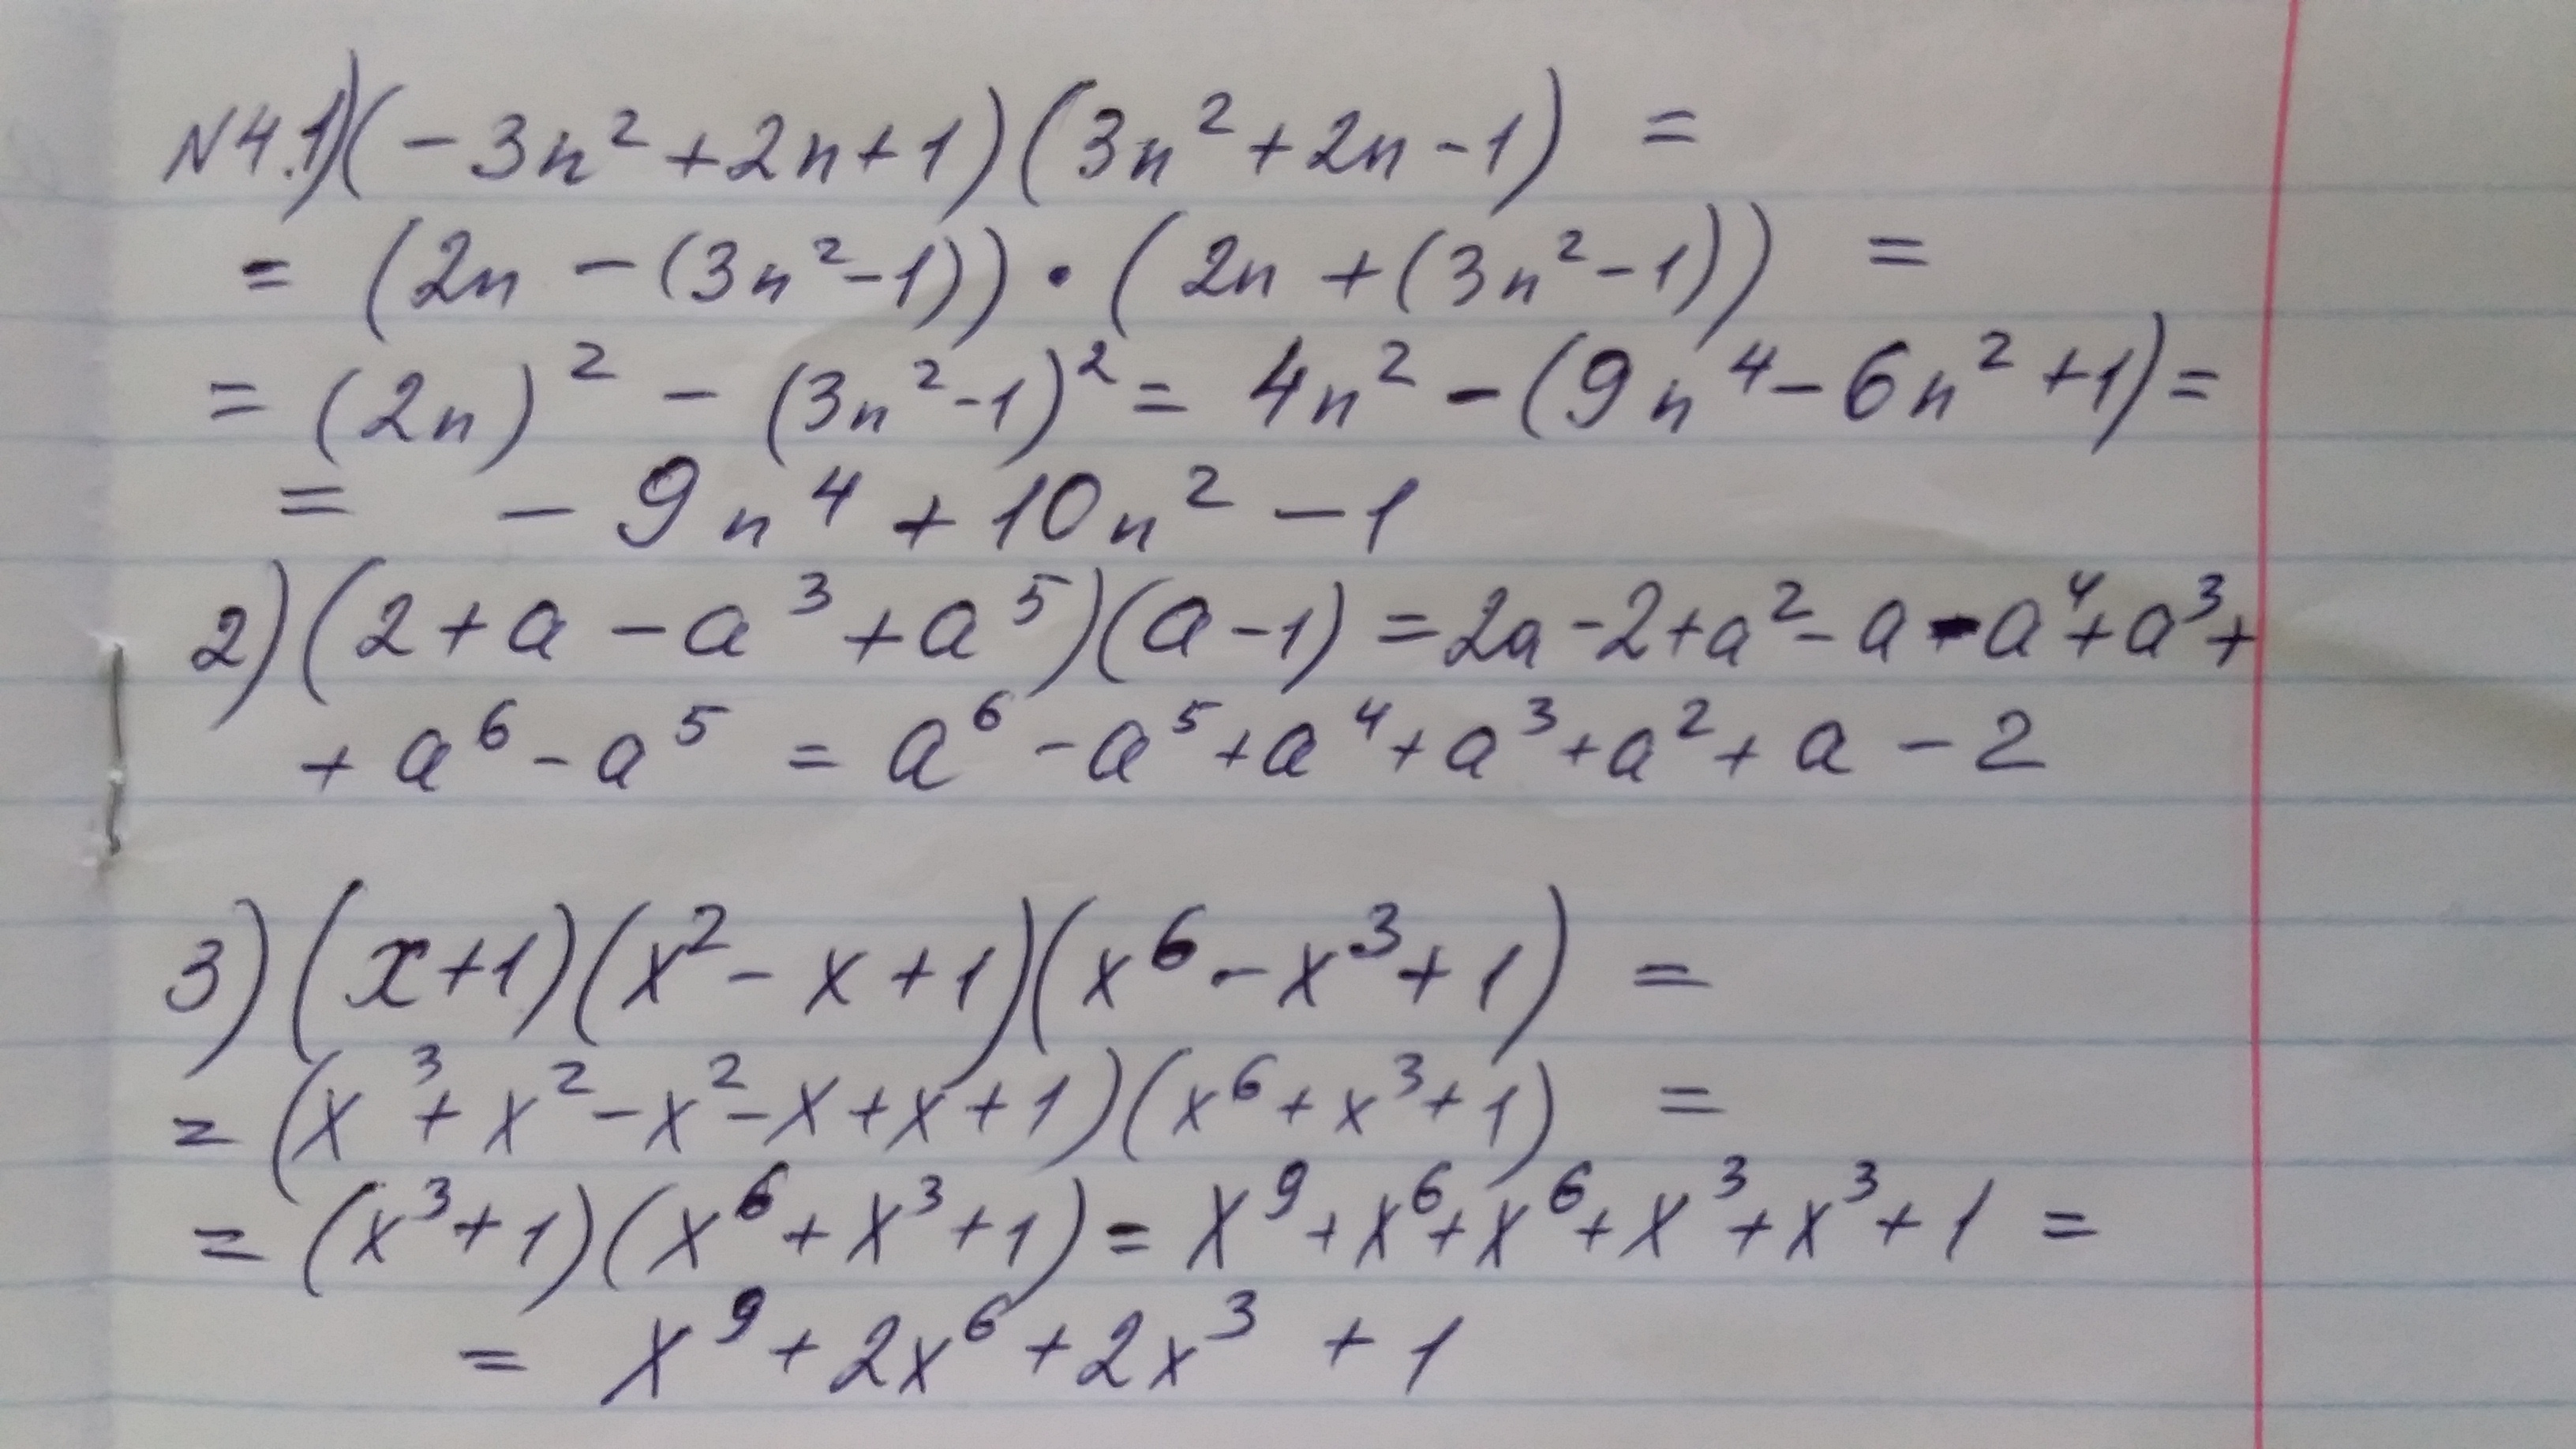 N4.1)(-3n²+2n+1)(3n²+2n-1) =
= (2n - (3n²-1)) · (2n + (3n²-1)) =
= (2n)² - (3n²-1)² = 4n² - (9n⁴ - 6n² + 1) =
= - 9n⁴ + 10n² - 1
2) (2 + a - a³ + a⁵)(a - 1) = 2a - 2 + a² - a - a⁴ + a³ +
+ a⁶ - a⁵ = a⁶ - a⁵ + a⁴ + a³ + a² + a - 2
3) (x+1)(x² - x + 1)(x⁶ - x³ + 1) =
= (x³ + x² - x² - x + x + 1)(x⁶ + x³ + 1) =
= (x³ + 1)(x⁶ + x³ + 1) = x⁹ + x⁶ + x⁶ + x³ + x³ + 1 =
= x⁹ + 2x⁶ + 2x³ + 1